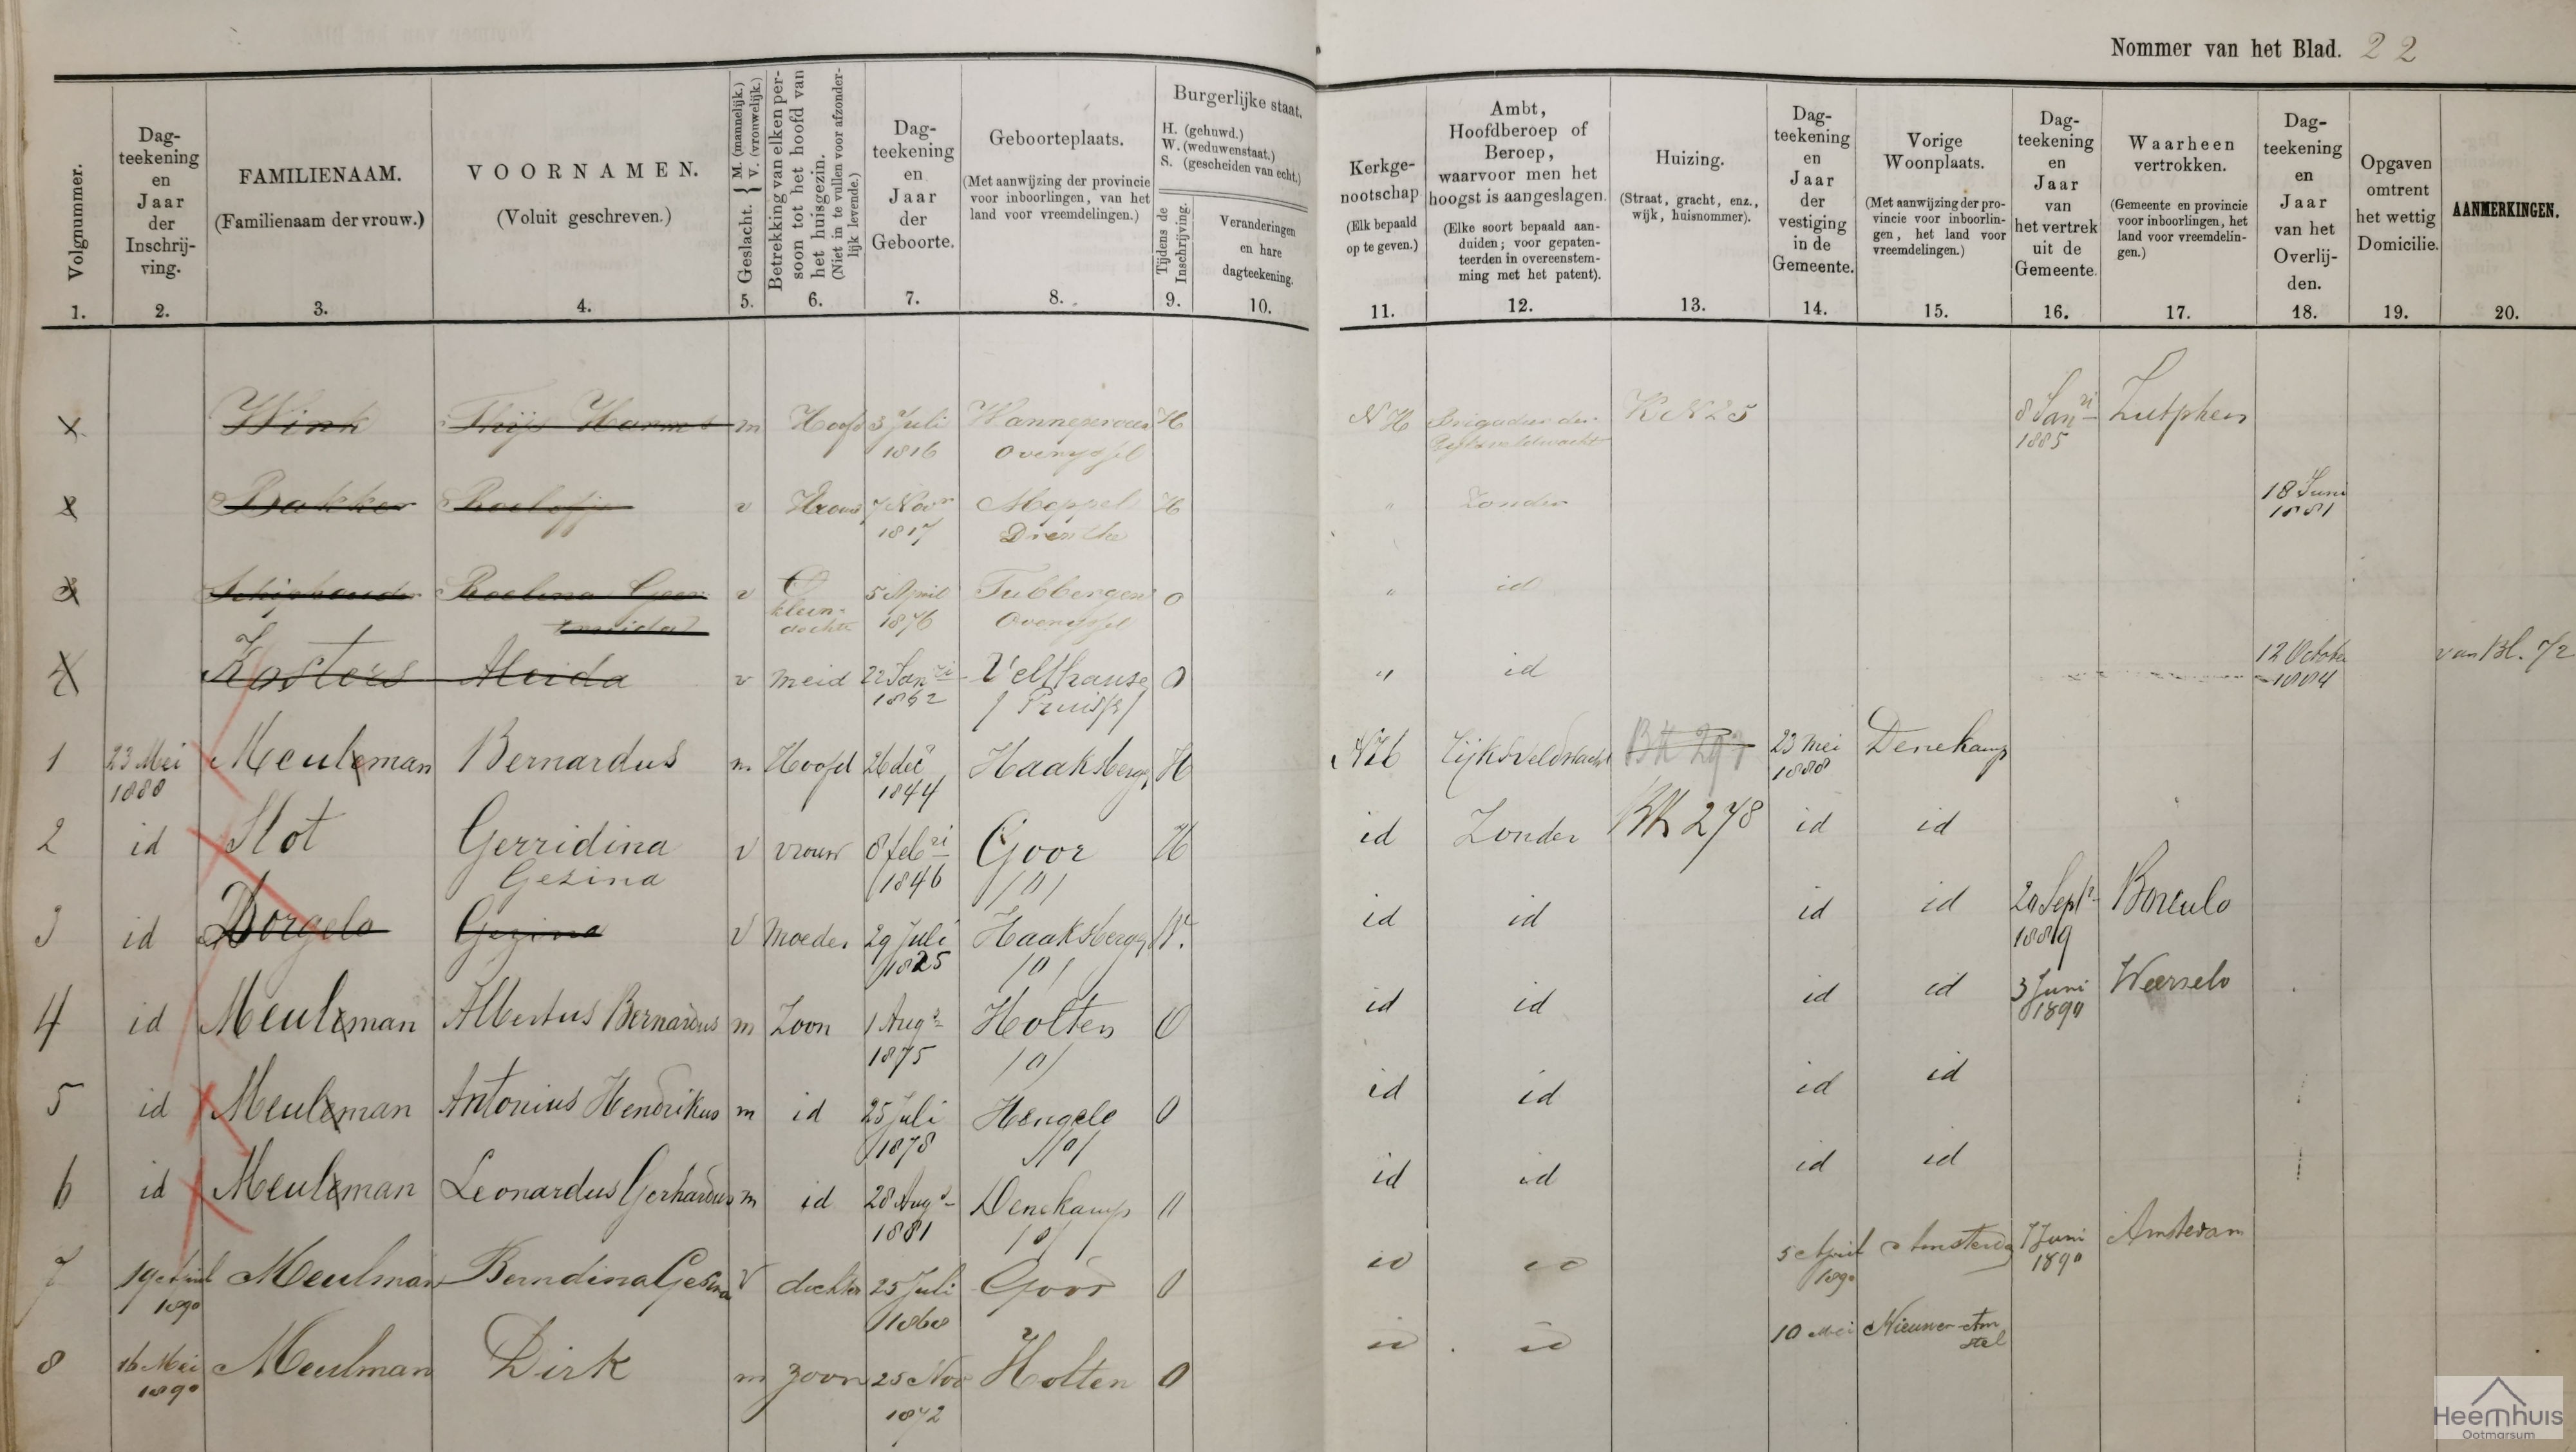 Nommer van het Blad. 22
Volgnummer.
1.
Dag-
teekening
en
Jaar
der
Inschrij-
ving.
2.
FAMILIENAAM.
(Familienaam der vrouw.)
3.
VOORNAMEN.
(Voluit geschreven.)
4.
Geslacht. { M. (mannelijk.)
V. (vrouwelijk.)
5.
Betrekking van elken per-
soon tot het hoofd van
het huisgezin.
(Niet in te vullen voor afzonder-
lijk levende.)
6.
Dag-
teekening
en
Jaar
der
Geboorte.
7.
Geboorteplaats.
(Met aanwijzing der provincie
voor inboorlingen, van het
land voor vreemdelingen.)
8.
Burgerlijke staat.
H. (gehuwd.)
W. (weduwenstaat.)
S. (gescheiden van echt.)
Tijdens de
Inschrijving.
9.
Veranderingen
en hare
dagteekening.
10.
Kerkge-
nootschap
(Elk bepaald
op te geven.)
11.
Ambt,
Hoofdberoep of
Beroep,
waarvoor men het
hoogst is aangeslagen.
(Elke soort bepaald aan-
duiden; voor gepaten-
teerden in overeenstem-
ming met het patent).
12.
Huizing.
(Straat, gracht, enz.,
wijk, huisnommer).
13.
Dag-
teekening
en
Jaar
der
vestiging
in de
Gemeente.
14.
Vorige
Woonplaats.
(Met aanwijzing der pro-
vincie voor inboorlin-
gen, het land voor
vreemdelingen.)
15.
Dag-
teekening
en
Jaar
van
het vertrek
uit de
Gemeente.
16.
Waarheen
vertrokken.
(Gemeente en provincie
voor inboorlingen, het
land voor vreemdelin-
gen.)
17.
Dag-
teekening
en
Jaar
van het
Overlij-
den.
18.
Opgaven
omtrent
het wettig
Domicilie.
19.
AANMERKINGEN.
20.
Wink Thijs Harms m Hoofd 3 Juli Wanneperveen H NH Brigadier der K N 25 8 Jan ri Zutphen
1816 Overijssel Rijksveldwacht 1885
Bakker Roelofje v Vrouw 7 Nov r Meppel H " Zonder 18 Juni
1817 Drenthe 1881
Roelina v 5 April Tubbergen O " id
klein- 1876 Overijssel
dochter
Kosters Aleida v meid 22 Jan ri Velthause O " id 12 Octobr van Bl. 72
1862 / Pruiss / 1884
1 23 Mei Meuleman Bernardus m Hoofd 26 dec r Haaksberge H NH Rijksveldwacht 23 mei Denekamp
1888 1844 1888
2 id Slot Gerridina v vrouw 8 feb ri Goor H id Zonder BK 278 id id
Gezina 1846 /O/
3 id Borgelo Gezina v Moeder 29 Juli Haaksberge W. id id id id 20 Sept r Borculo
1825 /O/ 1889
4 id Meuleman Albertus Bernardus m Zoon 1 Aug s Holten O id id id id 3 Juni Weerselo
1875 /O/ 1890
5 id Meuleman Antonius Hendrikus m id 25 Juli Hengelo O id id id id
1878 /O/
6 id Meuleman Leonardus Gerhardus m id 28 Aug s Denekamp O id id id id
1881 /O/
7 19 April Meulman Berndina Gesina V dochter 25 Juli Goor O id id 5 April Amsterda 7 Juni Amsterdam
1890 1868 1890 1890
8 16 Mei Meulman Dirk m zoon 25 Nov Holten O id id 10 Mei Nieuwer Am
1890 1872 stel
Heemhuis
Ootmarsum